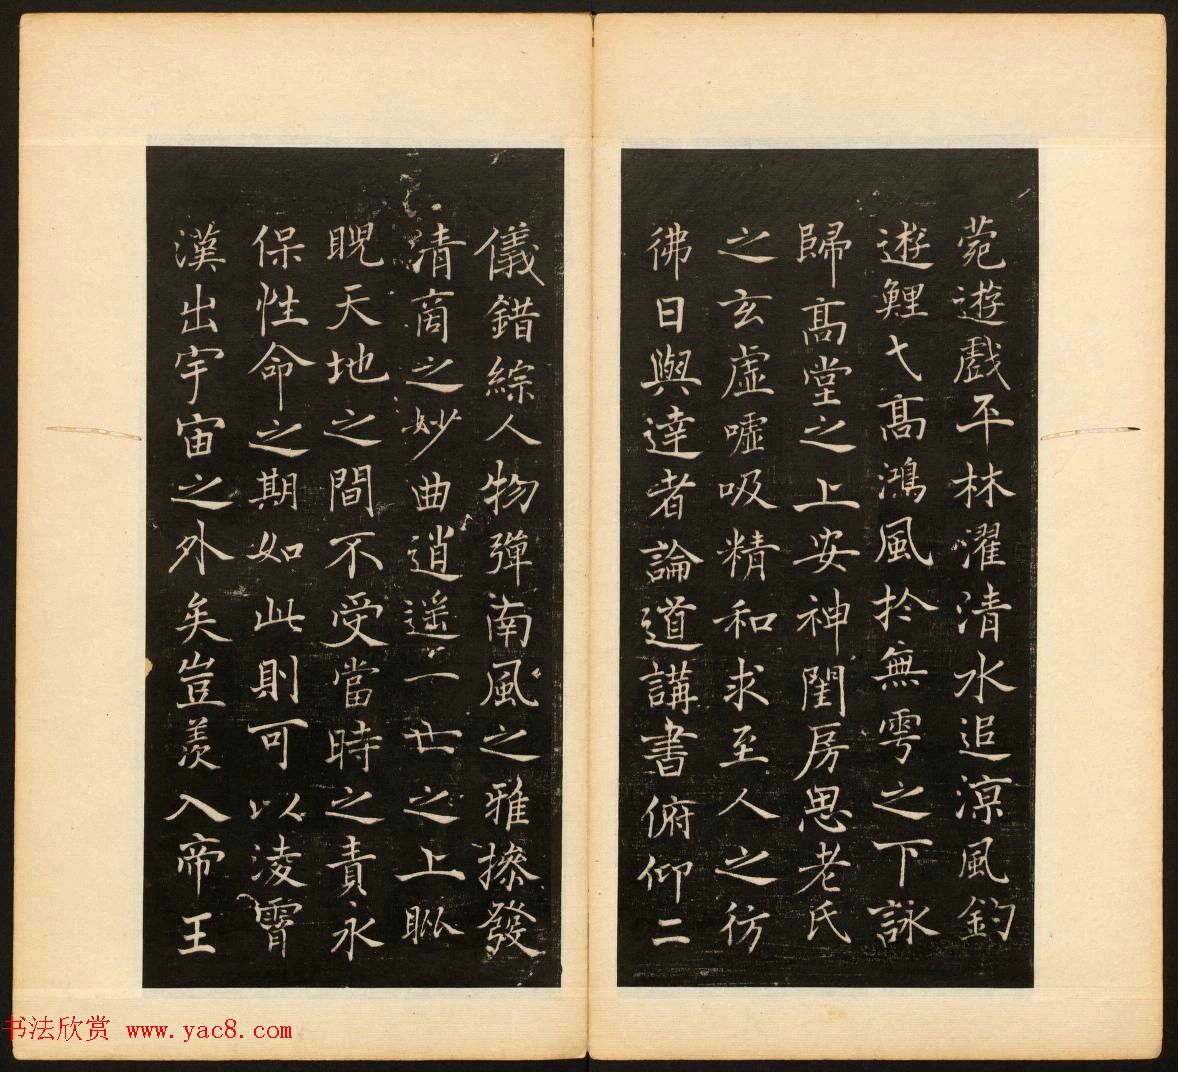 菀遊戲平林濯清水追涼風釣
遊鯉弋髙鴻風於無雩之下詠
歸髙堂之上安神閨房思老氏
之玄虛嘘吸精和求至人之彷
彿日與達者論道講書俯仰二
儀錯綜人物彈南風之雅操發
清商之妙曲逍遥一世之上
睨天地之間不受當時之責永
保性命之期如此則可以淩霄
漢出宇宙之外矣豈羨入帝王
书法欣赏 www.yac8.com